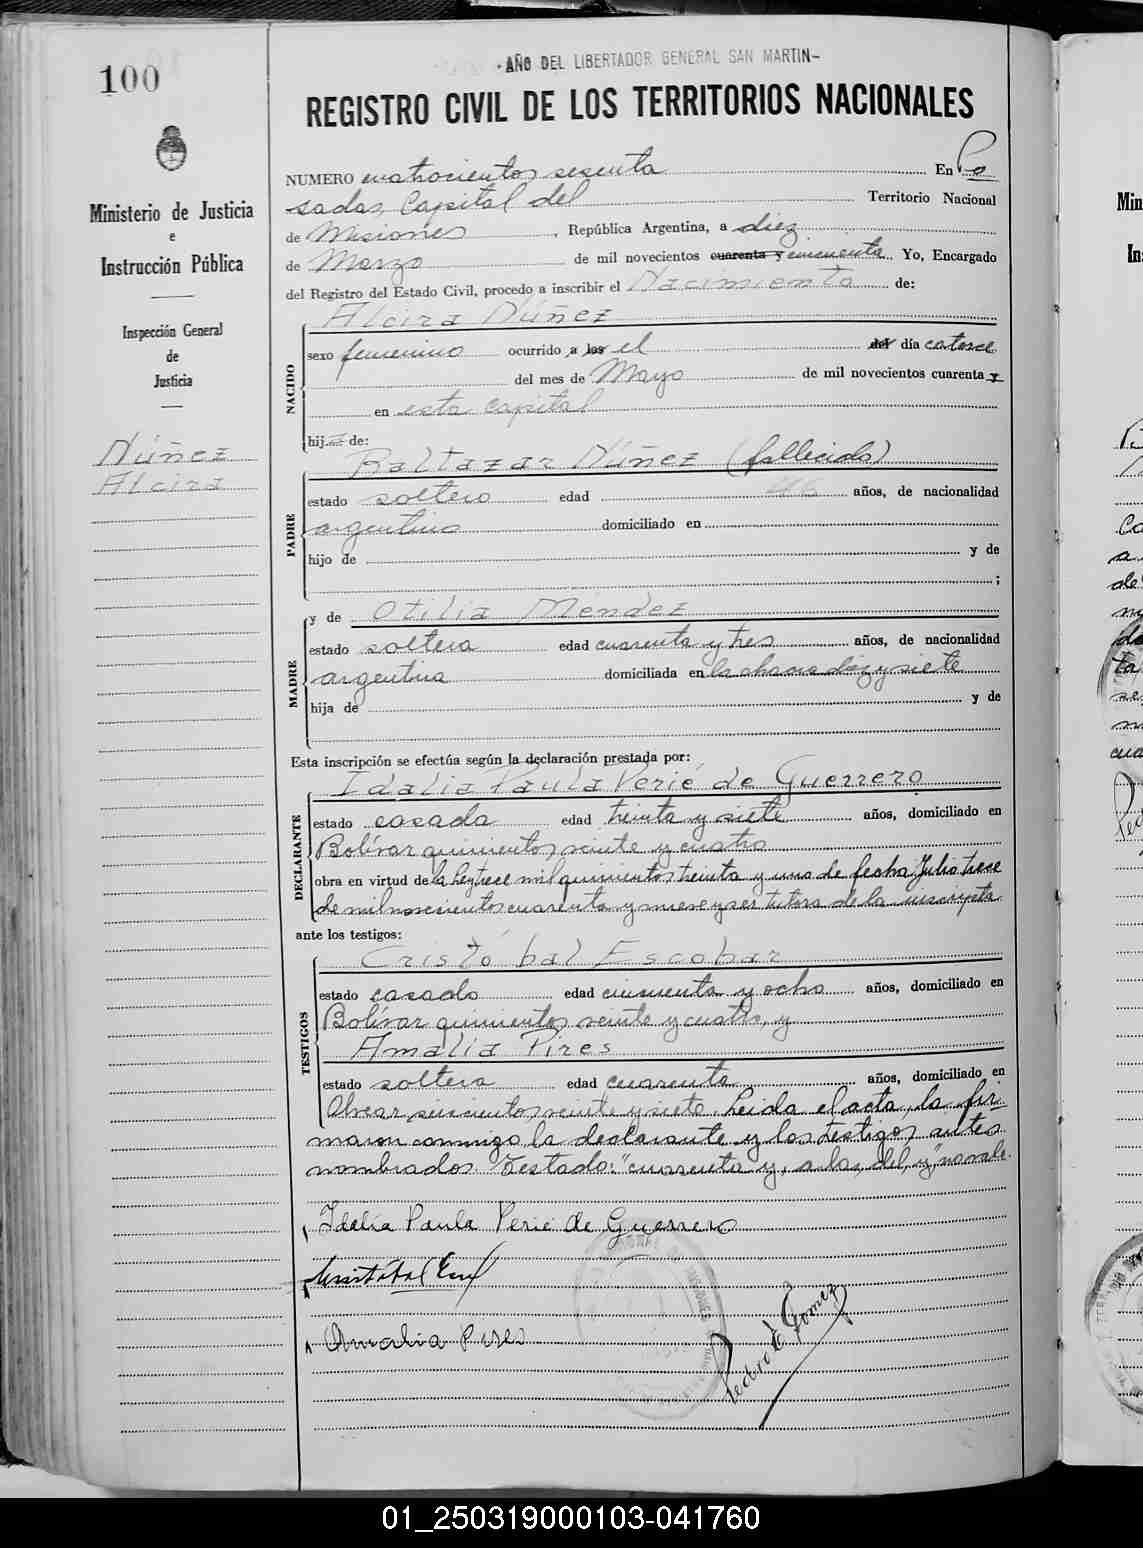 100
- AÑO DEL LIBERTADOR GENERAL SAN MARTIN-
REGISTRO CIVIL DE LOS TERRITORIOS NACIONALES
Ministerio de Justicia
e
Instrucción Pública
Inspección General
de
Justicia
Núñez
Alcira
NUMERO cuatrocientos sesenta En Po
sadas, Capital del Territorio Nacional
de Misiones, República Argentina, a diez
de Marzo de mil novecientos cuarenta y cincuenta Yo, Encargado
del Registro del Estado Civil, procedo a inscribir el Nacimiento de:
Alcira Núñez
NACIDO
sexo femenino ocurrido a los el del día catorce
del mes de Mayo de mil novecientos cuarenta y
en esta capital
hija de:
Baltazar Núñez (fallecido)
PADRE
estado soltero edad años, de nacionalidad
argentino domiciliado en
hijo de y de
;
y de Otilia Méndez
MADRE
estado soltera edad cuarenta y tres años, de nacionalidad
argentina domiciliada en la chacra diez y siete
hija de y de
Esta inscripción se efectúa según la declaración prestada por:
Idalia Paula Verié de Guerrero
DECLARANTE
estado casada edad treinta y siete años, domiciliado en
Bolívar quinientos veinte y cuatro
obra en virtud de la Ley trece mil quinientos treinta y uno de fecha Julio trece
de mil novecientos cuarenta y nueve y ser tutora de la inscripta
ante los testigos:
Cristóbal Escobar
TESTIGOS
estado casado edad cincuenta y ocho años, domiciliado en
Bolívar quinientos veinte y cuatro, y
Amalia Pires
estado soltera edad cuarenta años, domiciliado en
Alvear seiscientos veinte y siete. Leida el acta, la fir-
maron conmigo la declarante y los testigos antes
nombrados. Testado: "cuarenta y, a los, del, y," no vale.
Idalia Paula Verié de Guerrero
Cristóbal Esc
Amalia Pires
Pedro E. Gomez
Min
In
01_250319000103-041760